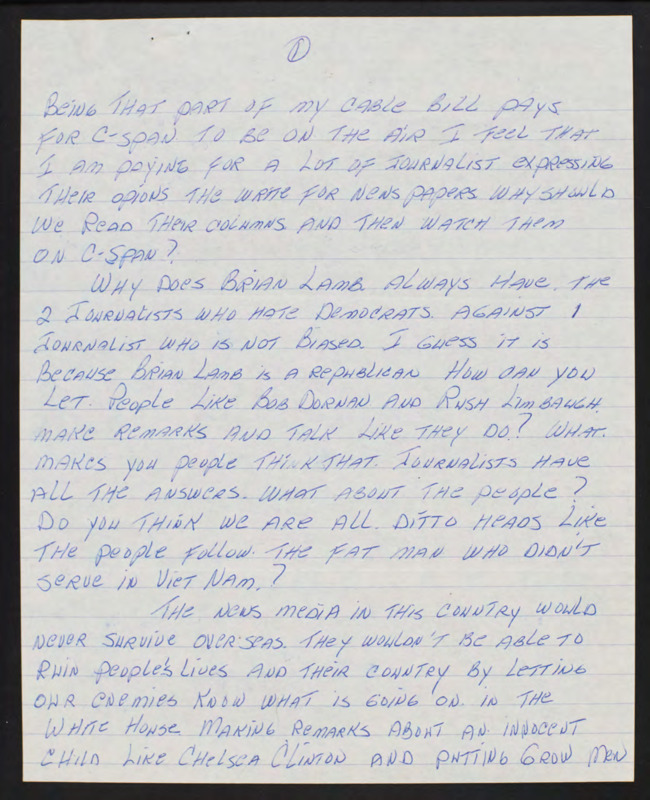 1
BEING THAT PART OF MY CABLE BILL PAYS
FOR C-SPAN TO BE ON THE AIR I FEEL THAT
I AM PAYING FOR A LOT OF JOURNALIST EXPRESSING
THEIR OPIONS THE WRITE FOR NEWS PAPERS WHY SHOULD
WE READ THEIR COLUMNS AND THEN WATCH THEM
ON C-SPAN?
WHY DOES BRIAN LAMB ALWAYS HAVE THE
2 JOURNALISTS WHO HATE DEMOCRATS AGAINST 1
JOURNALIST WHO IS NOT BIASED. I GUESS IT IS
BECAUSE BRIAN LAMB IS A REPUBLICAN HOW CAN YOU
LET. PEOPLE LIKE BOB DORNAN AND RUSH LIMBAUGH
MAKE REMARKS AND TALK LIKE THEY DO? WHAT.
MAKES YOU PEOPLE THINK THAT. JOURNALISTS HAVE
ALL THE ANSWERS. WHAT ABOUT THE PEOPLE?
DO YOU THINK WE ARE ALL. DITTO HEADS LIKE
THE PEOPLE FOLLOW. THE FAT MAN WHO DIDN'T
SERVE IN VIET NAM.?
THE NEWS MEDIA IN THIS COUNTRY WOULD
NEVER SURVIVE OVER SEAS. THEY WOULDN'T BE ABLE TO
RUIN PEOPLE'S LIVES AND THEIR COUNTRY BY LETTING
OUR ENEMIES KNOW WHAT IS GOING ON. IN THE
WHITE HOUSE MAKING REMARKS ABOUT AN INNOCENT
CHILD LIKE CHELSEA CLINTON AND PUTTING GROW MEN